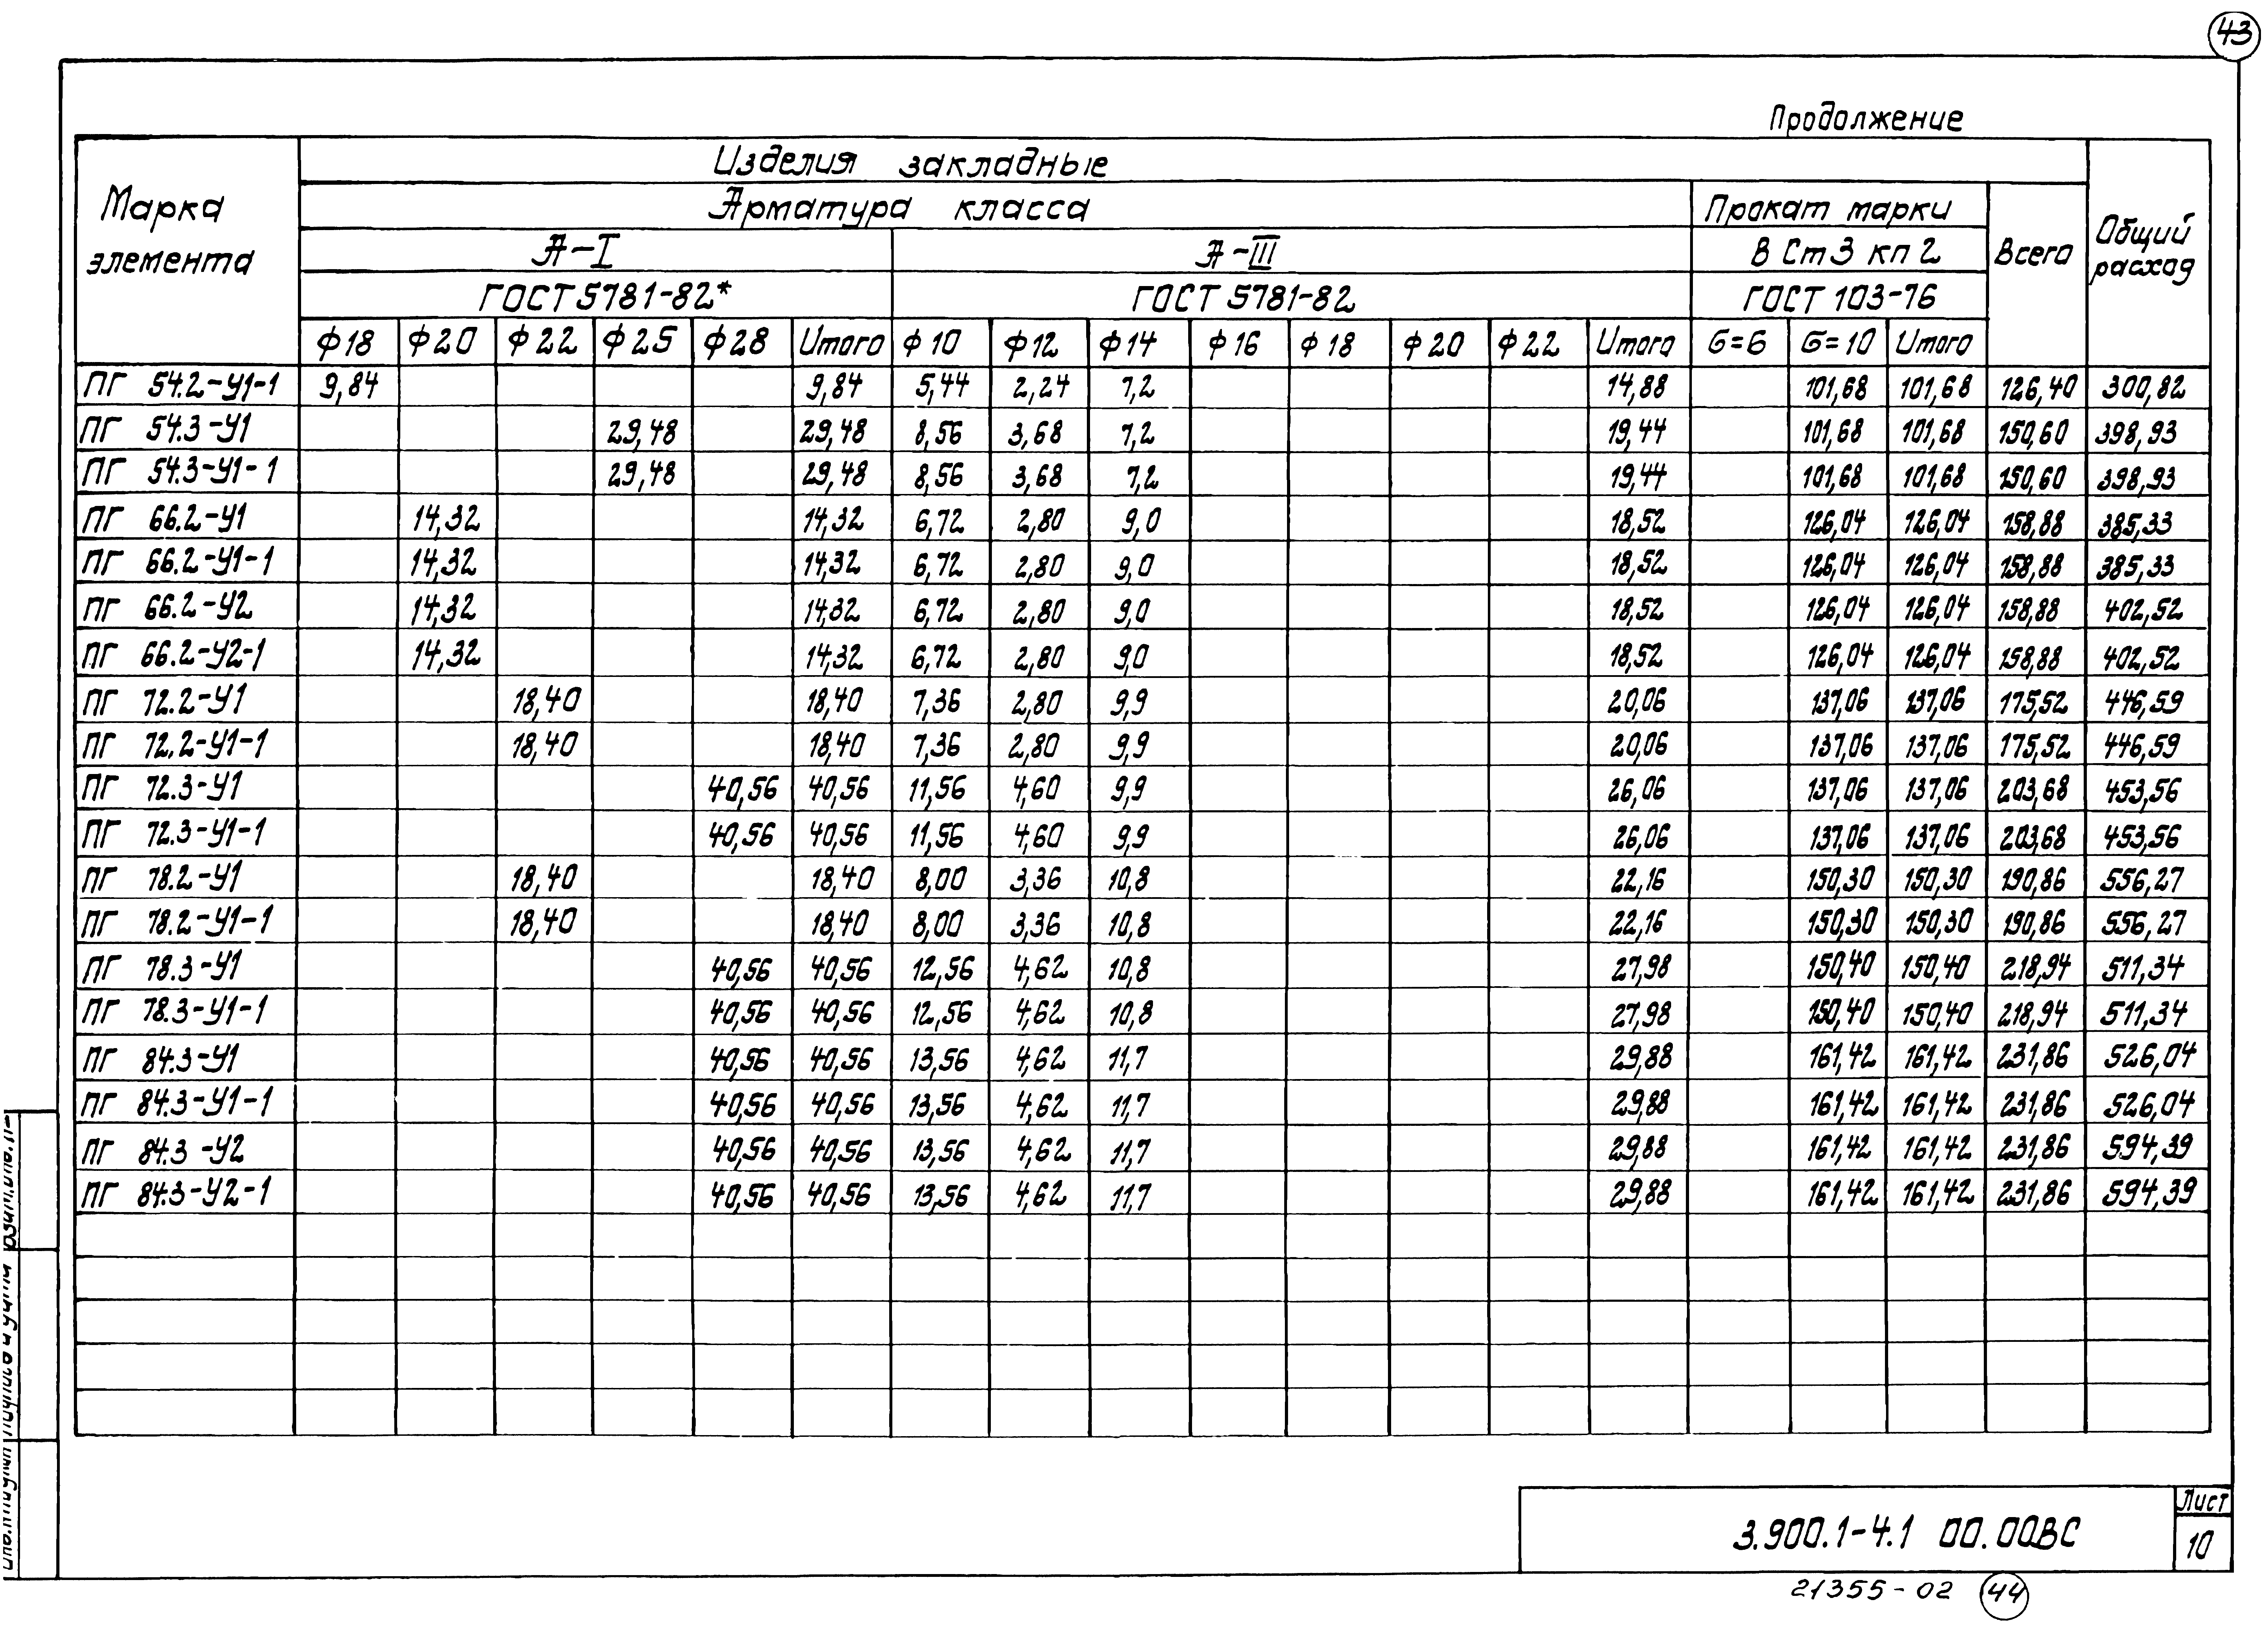 43
Продолжение
Марка элемента
Изделия закладные
Арматура класса
Прокат марки
Всего
Общий расход
А-I
А-III
В Ст3 кп 2
ГОСТ 5781-82*
ГОСТ 5781-82
ГОСТ 103-76
Ф18 Ф20 Ф22 Ф25 Ф28 Итого Ф10 Ф12 Ф14 Ф16 Ф18 Ф20 Ф22 Итого б=6 б=10 Итого
ПГ 54.2-У1-1 9,84 9,84 5,44 2,24 7,2 14,88 101,68 101,68 126,40 300,82
ПГ 54.3-У1 29,48 29,48 8,56 3,68 7,2 19,44 101,68 101,68 150,60 398,93
ПГ 54.3-У1-1 29,48 29,48 8,56 3,68 7,2 19,44 101,68 101,68 150,60 398,93
ПГ 66.2-У1 14,32 14,32 6,72 2,80 9,0 18,52 126,04 126,04 158,88 385,33
ПГ 66.2-У1-1 14,32 14,32 6,72 2,80 9,0 18,52 126,04 126,04 158,88 385,33
ПГ 66.2-У2 14,32 14,32 6,72 2,80 9,0 18,52 126,04 126,04 158,88 402,52
ПГ 66.2-У2-1 14,32 14,32 6,72 2,80 9,0 18,52 126,04 126,04 158,88 402,52
ПГ 72.2-У1 18,40 18,40 7,36 2,80 9,9 20,06 137,06 137,06 175,52 446,59
ПГ 72.2-У1-1 18,40 18,40 7,36 2,80 9,9 20,06 137,06 137,06 175,52 446,59
ПГ 72.3-У1 40,56 40,56 11,56 4,60 9,9 26,06 137,06 137,06 203,68 453,56
ПГ 72.3-У1-1 40,56 40,56 11,56 4,60 9,9 26,06 137,06 137,06 203,68 453,56
ПГ 78.2-У1 18,40 18,40 8,00 3,36 10,8 22,16 150,30 150,30 190,86 556,27
ПГ 78.2-У1-1 18,40 18,40 8,00 3,36 10,8 22,16 150,30 150,30 190,86 556,27
ПГ 78.3-У1 40,56 40,56 12,56 4,62 10,8 27,98 150,40 150,40 218,94 511,34
ПГ 78.3-У1-1 40,56 40,56 12,56 4,62 10,8 27,98 150,40 150,40 218,94 511,34
ПГ 84.3-У1 40,56 40,56 13,56 4,62 11,7 29,88 161,42 161,42 231,86 526,04
ПГ 84.3-У1-1 40,56 40,56 13,56 4,62 11,7 29,88 161,42 161,42 231,86 526,04
ПГ 84.3-У2 40,56 40,56 13,56 4,62 11,7 29,88 161,42 161,42 231,86 594,39
ПГ 84.3-У2-1 40,56 40,56 13,56 4,62 11,7 29,88 161,42 161,42 231,86 594,39
3.900.1-4.1 00.00ВС
Лист
10
21355-02 44